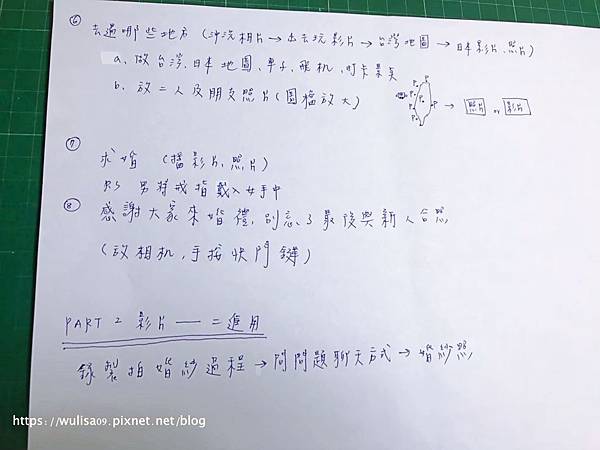 ⑥ 去過哪些地方 (沖洗相片→出去玩影片→台灣地圖→日本影片、照片)
a. 做台灣、日本地圖、車子、飛机、叮卡景點
b. 放二人及朋友照片(圖檔放大)
→ 照片 or 影片
⑦ 求婚 (擋影片、照片)
RS 男將戒指戴入女手中
⑧ 感謝大家來婚禮,別忘了最後與新人合照
(放相机,手按快門鍵)
PART 2 影片 — 二進用
錄製拍婚紗過程→問問題聊天方式→婚紗照
https://wulisa09.pixnet.net/blog